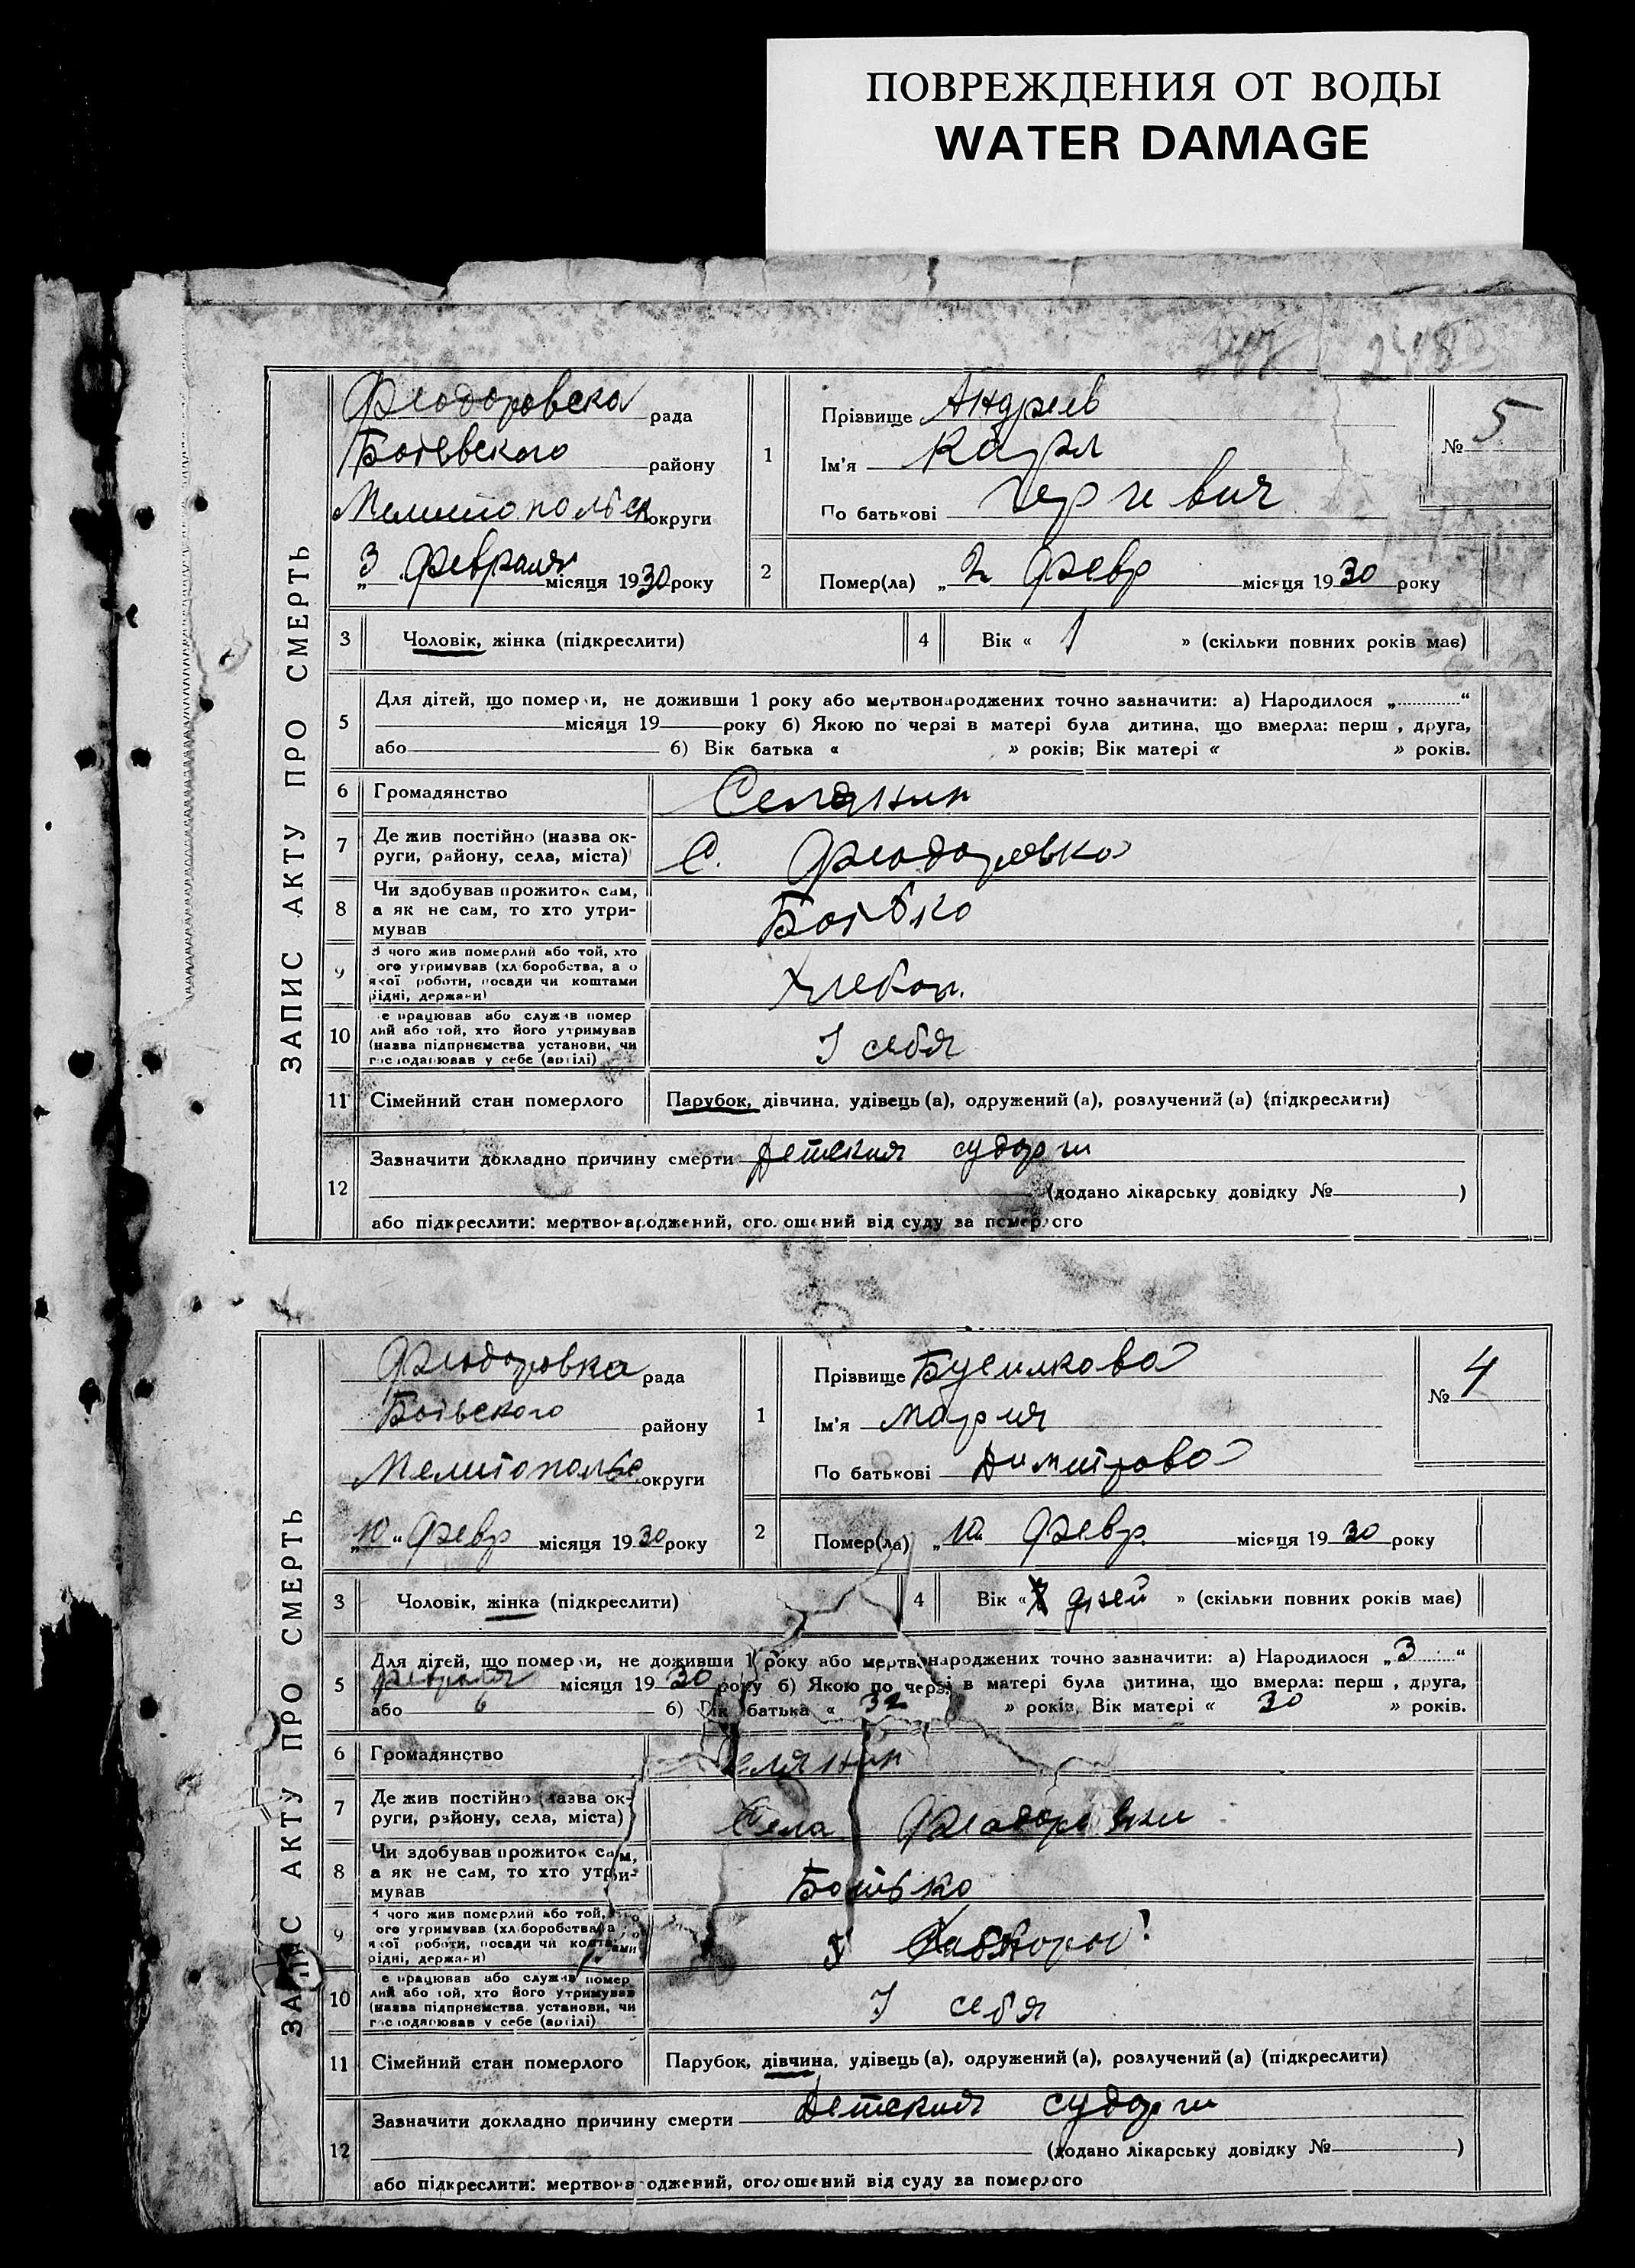 ПОВРЕЖДЕНИЯ ОТ ВОДЫ
WATER DAMAGE
ЗАПИС АКТУ ПРО СМЕРТЬ
Феодоровска рада
Ботевского району
Мелитопольск округи
„3 февраля місяця 1930 року
1
Прізвище Андреев
Ім'я Карл
По батькові
№ 5
2
Помер(ла) „2 Февр місяця 1930 року
3 Чоловік, жінка (підкреслити)
4 Вік « 1 » (скільки повних років має)
5 Для дітей, що померли, не доживши 1 року або мертвонароджених точно зазначити: а) Народилося „ “
місяця 19 року б) Якою по черзі в матері була дитина, що вмерла: перш , друга,
або б) Вік батька « » років; Вік матері « » років.
6 Громадянство Селянин
7 Де жив постійно (назва ок-
руги, району, села, міста) С. Феодоровка
8 Чи здобував прожиток сам,
а як не сам, то хто утри-
мував Батько
9 З чого жив померлий або той, хто
ого утримував (хл боробства, а о
якої роботи, посади чи коштами
рідні, держави) Хлебоп.
10 е працював або служив помер
лий або той, хто його утримував
(назва підприємства установи, чи
господарював у себе (артілі) У себя
11 Сімейний стан померлого Парубок, дівчина, удівець (а), одружений (а), розлучений (а) (підкреслити)
12 Зазначити докладно причину смерти Детския судорги
(додано лікарську довідку № )
або підкреслити: мертвонароджений, оголошений від суду за померлого
ЗАПИС АКТУ ПРО СМЕРТЬ
Феодоровка рада
Ботьвского району
Мелитополь округи
„10“ Февр місяця 1930 року
1
Прізвище Бусилкова
Ім'я Мария
По батькові Димитрова
№ 4
2
Помер(ла) „10 Февр. місяця 1930 року
3 Чоловік, жінка (підкреслити)
4 Вік « дней » (скільки повних років має)
5 Для дітей, що померли, не доживши 1 року або мертвонароджених точно зазначити: а) Народилося „3“
февраля місяця 1930 року б) Якою по черзі в матері була дитина, що вмерла: перш , друга,
або 6 б) Вік батька « 32 » років, Вік матері « 30 » років.
6 Громадянство Селянин
7 Де жив постійно (назва ок-
руги, району, села, міста) Села Феодоровки
8 Чи здобував прожиток сам,
а як не сам, то хто утри-
мував Батько
9 З чого жив померлий або той, хто
ого утримував (хл боробства, а о
якої роботи, посади чи коштами
рідні, держави)
10 е працював або служив помер
лий або той, хто його утримував
(назва підприємства установи, чи
господарював у себе (артілі) У себя
11 Сімейний стан померлого Парубок, дівчина, удівець (а), одружений (а), розлучений (а) (підкреслити)
12 Зазначити докладно причину смерти Детския судорги
(додано лікарську довідку № )
або підкреслити: мертвонароджений, оголошений від суду за померлого